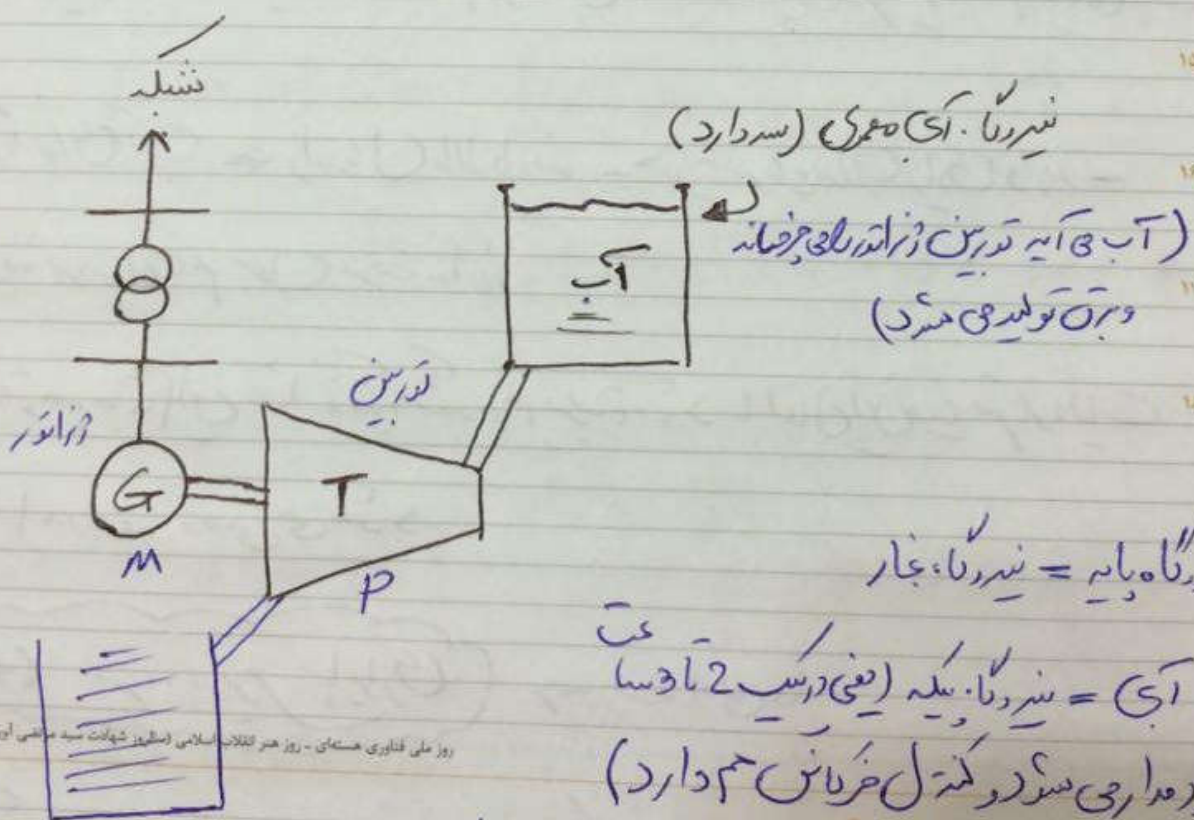 شبکه
نیروگاه آبی معمولی (سد دارد)
(آب می آید توربین ژنراتور را می چرخاند
و برق تولید می شود)
آب
توربین
ژنراتور
G
T
M
P
گاه پایه = نیروگاه بخار
آبی = نیروگاه پیکه (یعنی در پیک 2 تا 3 ساعت
مدار می شود و کنترل فرکانس هم دارد)
روز ملی فناوری هسته‌ای - روز هنر انقلاب اسلامی (سالروز شهادت سید مرتضی آوی